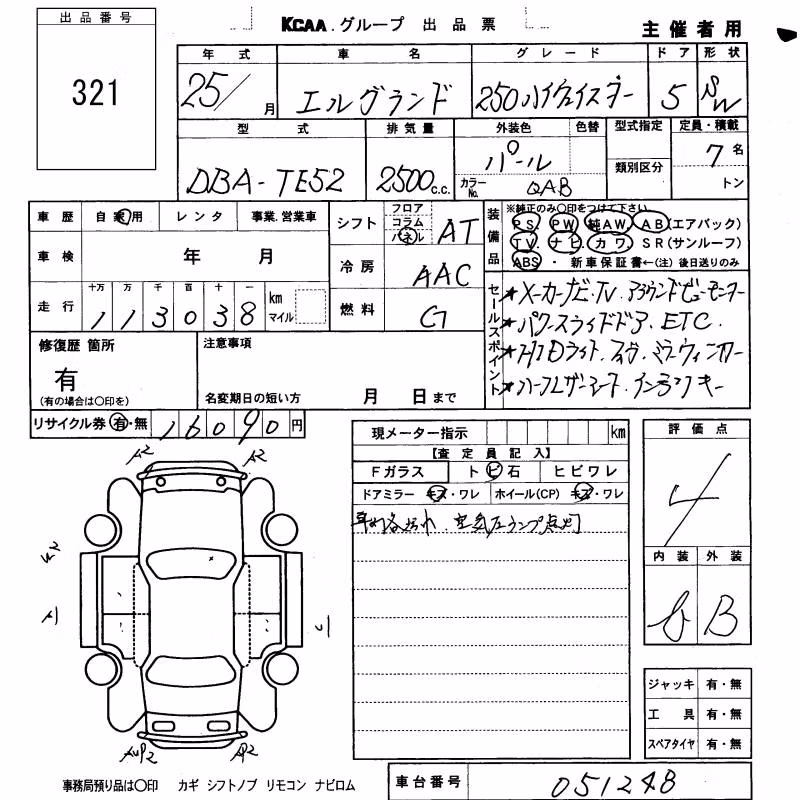 出品番号
321
KCAA.グループ 出品票
主催者用
年式 車名 グレード ドア 形状
25/ 月 エルグランド 250ハイウェイスター 5 SW
型式 排気量 外装色 色替 型式指定 定員・積載
DBA-TE52 2500 c.c. パール 類別区分 7名
カラーNo. QAB トン
車歴 自家用 レンタ 事業.営業車
シフト フロア コラム パネル AT
装備品
※純正のみ○印をつけて下さい。
PS. PW 純AW. AB(エアバック)
TV. ナビ カワ SR(サンルーフ)
ABS ・ 新車保証書←(注) 後日送りのみ
車検 年 月
冷房 AAC
走行 十万 万 千 百 十 一
113038 km マイル
燃料 G
セールスポイント
★メーカーナビ.TV.アラウンドビューモニター
★パワースライドドア.ETC.
★HIDライト.
★ハーフレザーシート.インテリキー
修復歴 箇所
有
(有の場合は○印を)
注意事項
名変期日の短い方 月 日まで
リサイクル券 有・無 16090円
現メーター指示 km
【査定員記入】
Fガラス トビ石 ヒビワレ
ドアミラー キズ・ワレ ホイール(CP) キズ・ワレ
点灯
評価点
4
内装 外装
B
A2
A2
A2
ジャッキ 有・無
工具 有・無
スペアタイヤ 有・無
事務局預り品は○印 カギ シフトノブ リモコン ナビロム
車台番号 051248